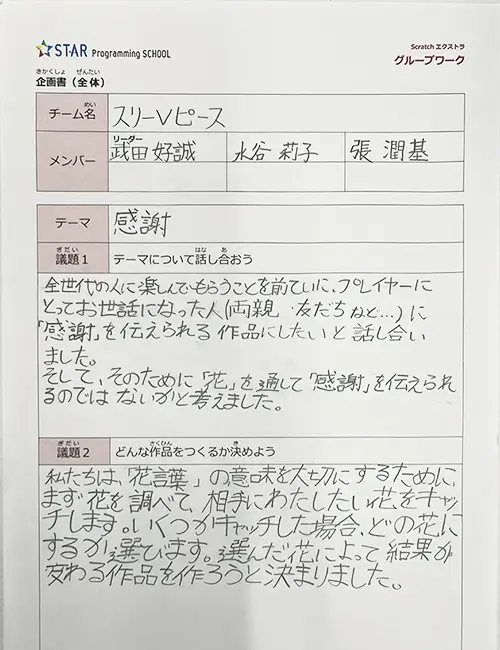 STAR Programming SCHOOL
Scratch エクストラ
グループワーク
きかくしょ ぜんたい
企画書（全体）
めい
チーム名
スリーVピース
メンバー
リーダー
武田 好誠
水谷 莉子
張 潤基
テーマ
感謝
ぎだい
議題1
はな あ
テーマについて話し合おう
全世代の人に楽しんでもらうことを前ていに、プレイヤーに
とってお世話になった人(両親 友だちなど…)に
「感謝」を伝えられる作品にしたいと話し合い
ました。
そして、そのために「花」を通して「感謝」を伝えられ
るのではないかと考えました。
ぎだい
議題2
さくひん き
どんな作品をつくるか決めよう
私たちは、「花言葉」の意味を大切にするために、
まず花を調べて、相手にわたしたい花をキャッ
チします。いくつかキャッチした場合、どの花に
するか選びます。選んだ花によって結果が
変わる作品を作ろうと決まりました。